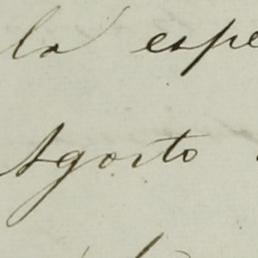 la espe
Agosto